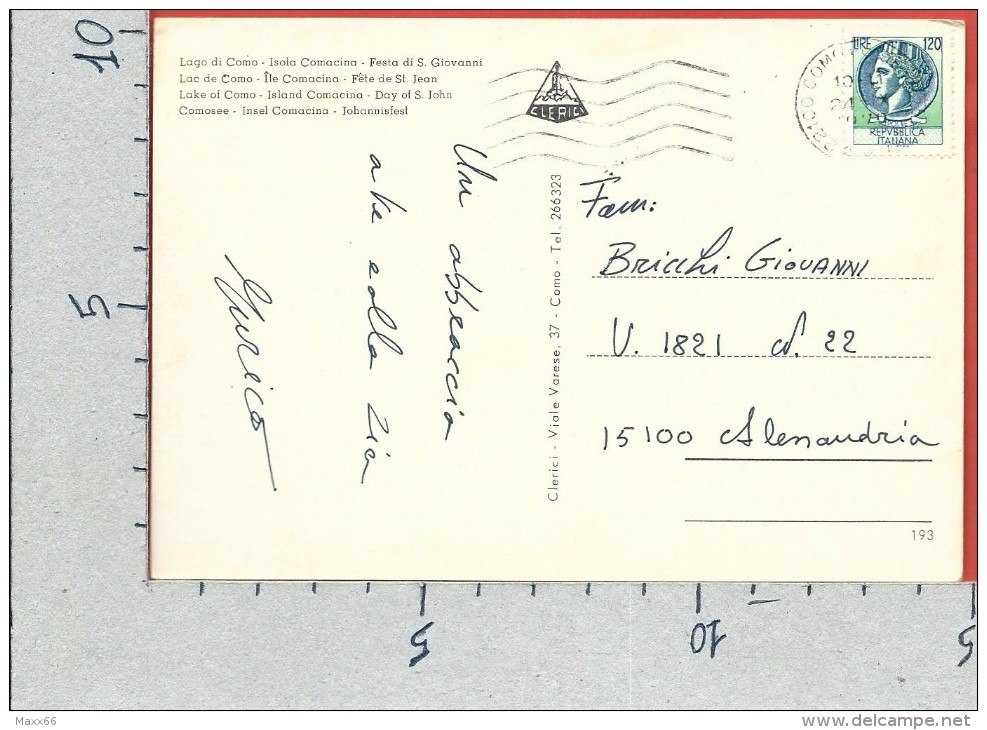 Lago di Como - Isola Comacina - Festa di S. Giovanni
Lac de Como - Île Comacina - Fête de St. Jean
Lake of Como - Island Comacina - Day of S. John
Comosee - Insel Comacina - Johannisfest
CLERICI
LIRE 120
REPVBBLICA
ITALIANA
22100 COMO
10
24
Un abbraccio
a te e alla zia
Clerici - Viale Varese, 37 - Como - Tel. 266323
Fam:
Bricchi GIOVANNI
V. 1821 N. 22
15100 Alessandria
193
10
5
5
10
5
Maxx66
www.delcampe.net